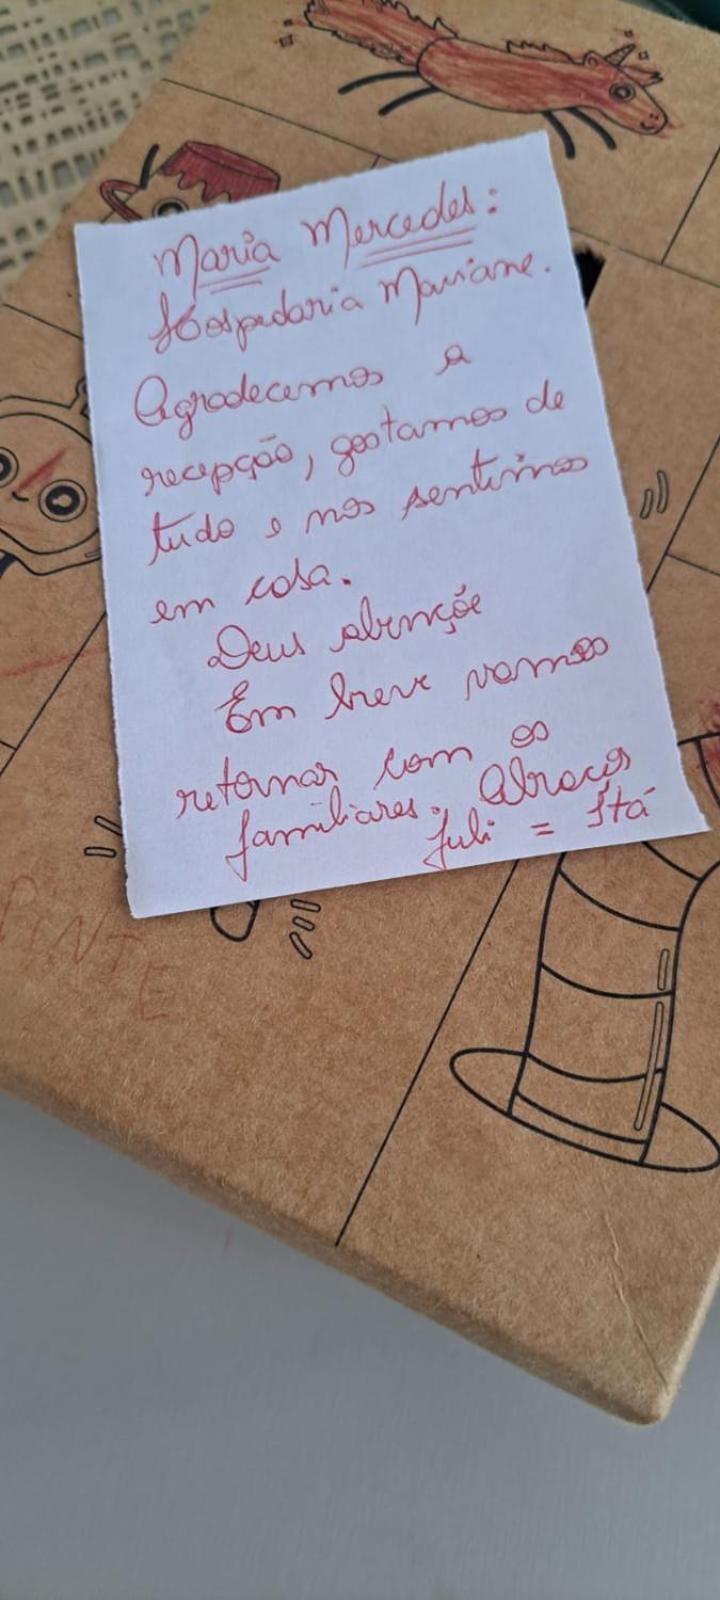 Maria Mercedes:
Hospedaria Mariane.
Agradecemos a
recepção, gostamos de
tudo e nos sentimos
em casa.
Deus abençõe
Em breve vamos
retornar com os
familiares. Abraços
Juli = Itá
NTE